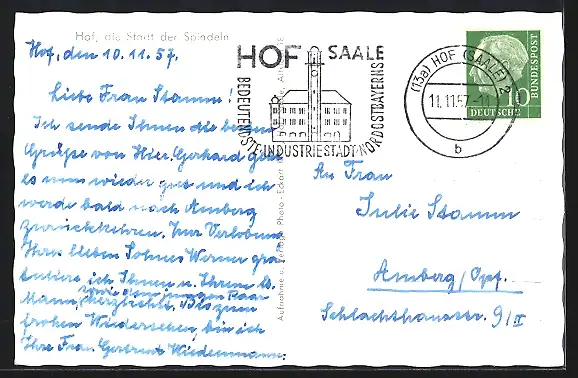 Hof, die Stadt der Spindeln
Hof, den 10.11.57.
Liebe Frau Stamm!
Ich sende Ihnen die besten
Grüße von Hier. Gerhard geht
es nun wieder gut und ich
werde bald nach Amberg
zurückkehren. Zur Verlobung
Ihres lieben Sohnes Werner gra-
tuliere ich Ihnen u. Ihrem lb.
Mann, sowie dem jungen Paar
herzlichst. Also zum
frohen Wiedersehen, bin ich
Ihre Frau Gertrud Wiedenmann.
Aufnahme u. Verlag: Photo-Eckart
HOF SAALE
BEDEUTENDSTE INDUSTRIESTADT NORDOSTBAYERNS
(13a) HOF (SAALE) 2
11.11.57.-11
b
10
DEUTSCHE
BUNDESPOST
An Frau
Julie Stamm
Amberg/Opf.
Schlachthausstr. 9/II